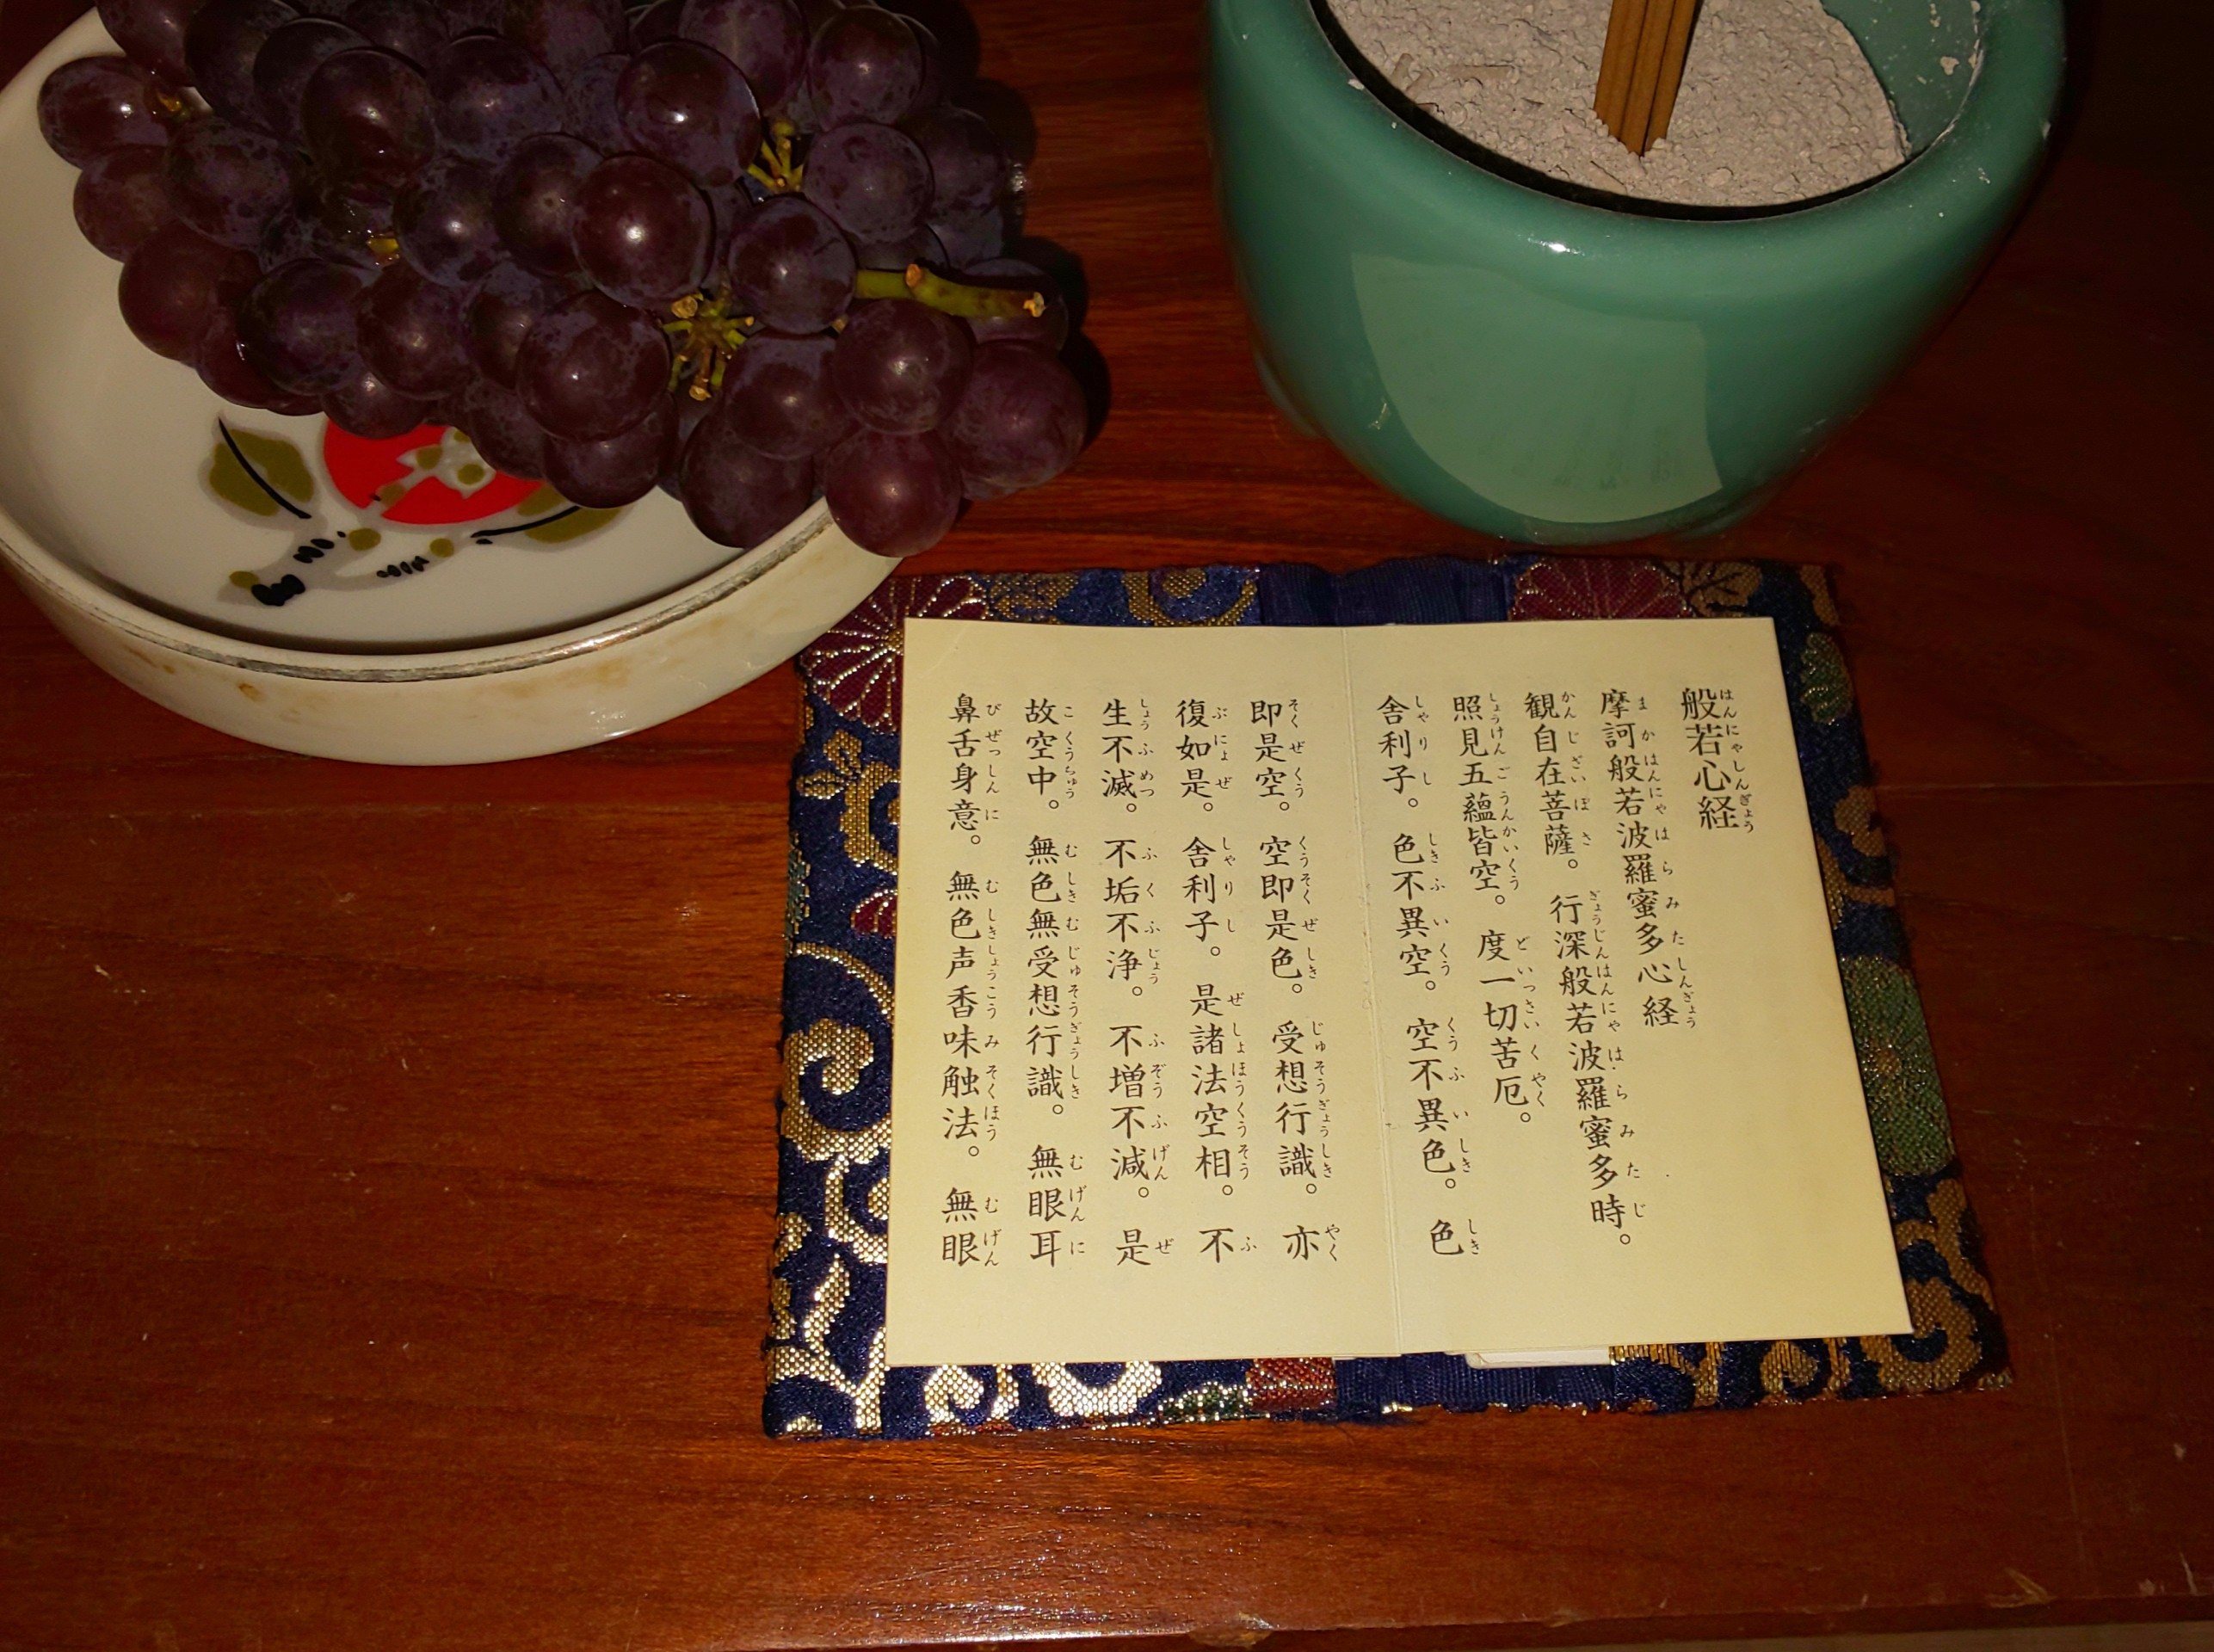 般若心経
摩訶般若波羅蜜多心経
観自在菩薩。行深般若波羅蜜多時。
照見五蘊皆空。度一切苦厄。
舎利子。色不異空。空不異色。色
即是空。空即是色。受想行識。亦
復如是。舎利子。是諸法空相。不
生不滅。不垢不浄。不増不減。是
故空中。無色無受想行識。無眼耳
鼻舌身意。無色声香味触法。無眼